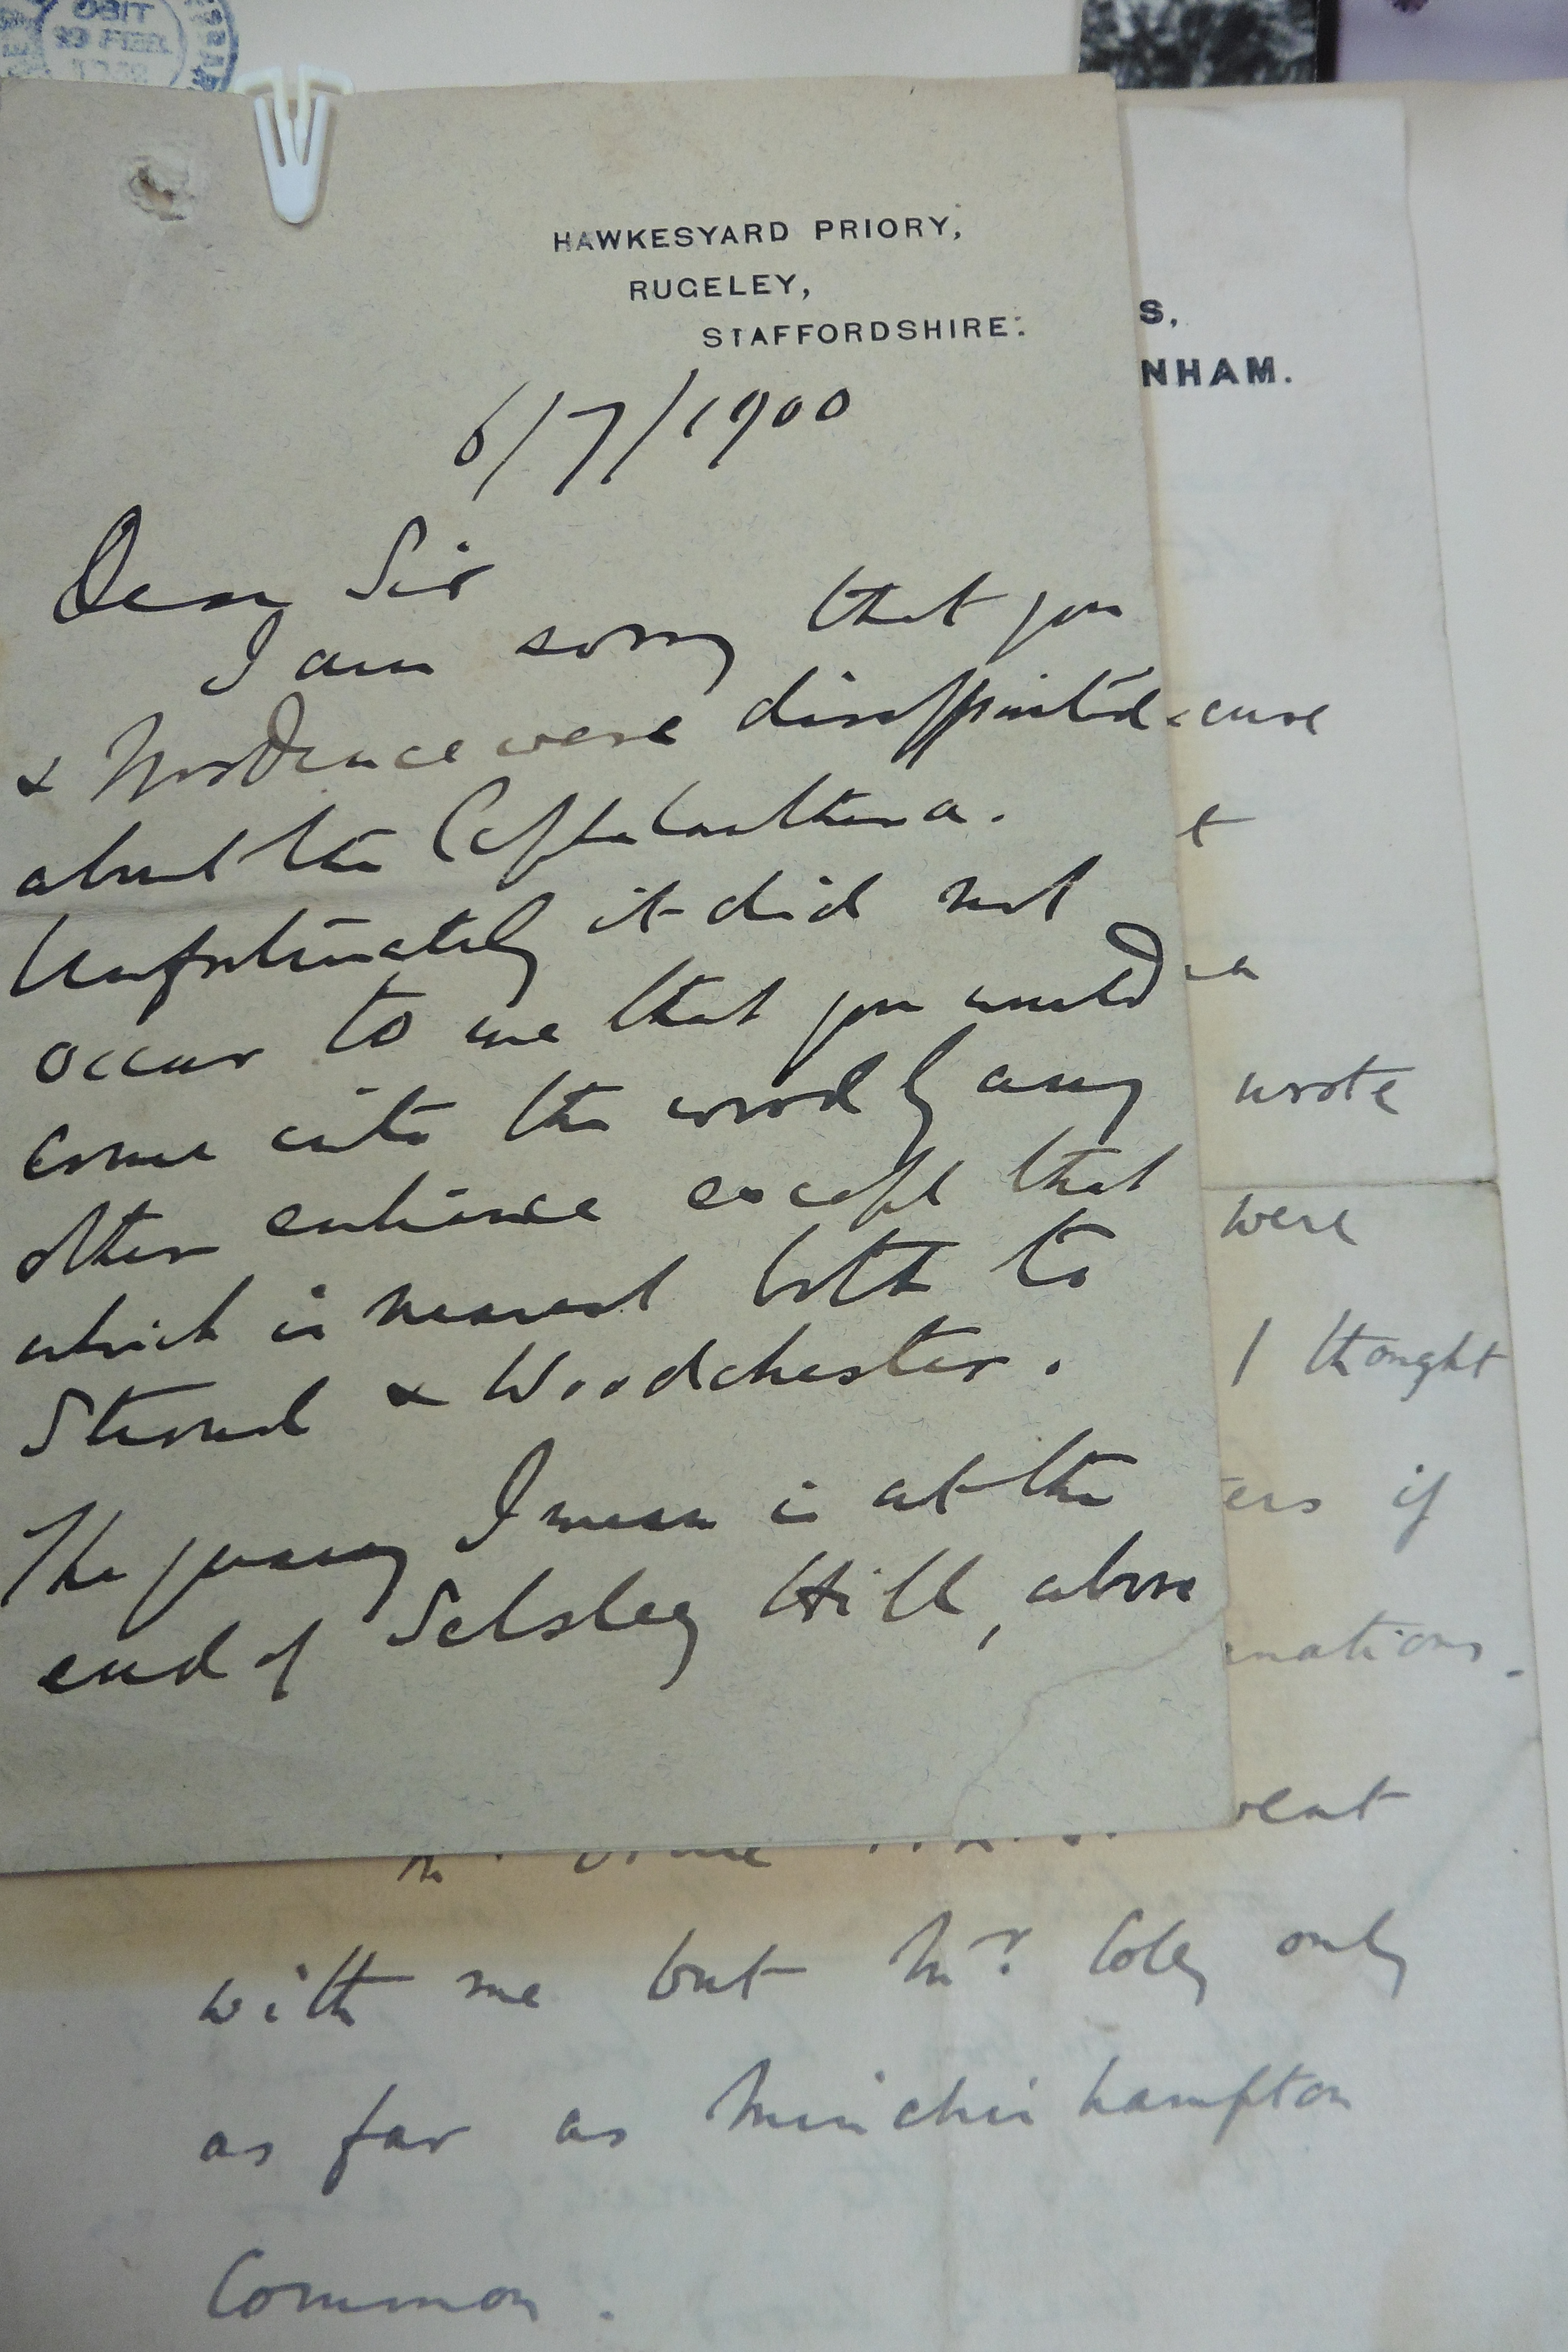 HAWKESYARD PRIORY,
RUGELEY,
STAFFORDSHIRE.
6/7/1900
Dear Sir
I am sorry that you
& were disappointed
about the Cephalanthera.
Unfortunately it did not
occur to me that you would
come into the wood by any
other entrance except that
which is nearest both to
Stroud & Woodchester.
The I mean is at the
end of Selsley Hill, above
S,
NHAM.
wrote
were
I thought
if
with me but Mr. Coley only
as far as Minchinhampton
Common.